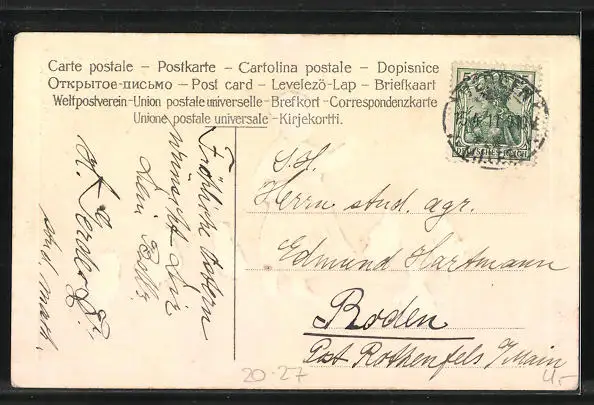 Carte postale – Postkarte – Cartolina postale – Dopisnice
Открытое-письмо – Post card – Levelező-Lap – Briefkaart
Weltpostverein-Union postale universelle-Brefkort-Correspondenzkarte
Unione postale universale-Kirjekortti.
5 5
DEUTSCHES REICH
S. H.
Herrn stud. agr.
Edmund Hartmann
Roden
Post Rothenfels a/Main
Fröhliche Ostern
wünscht Dir
Dein
stud. math.
20-27
4,-